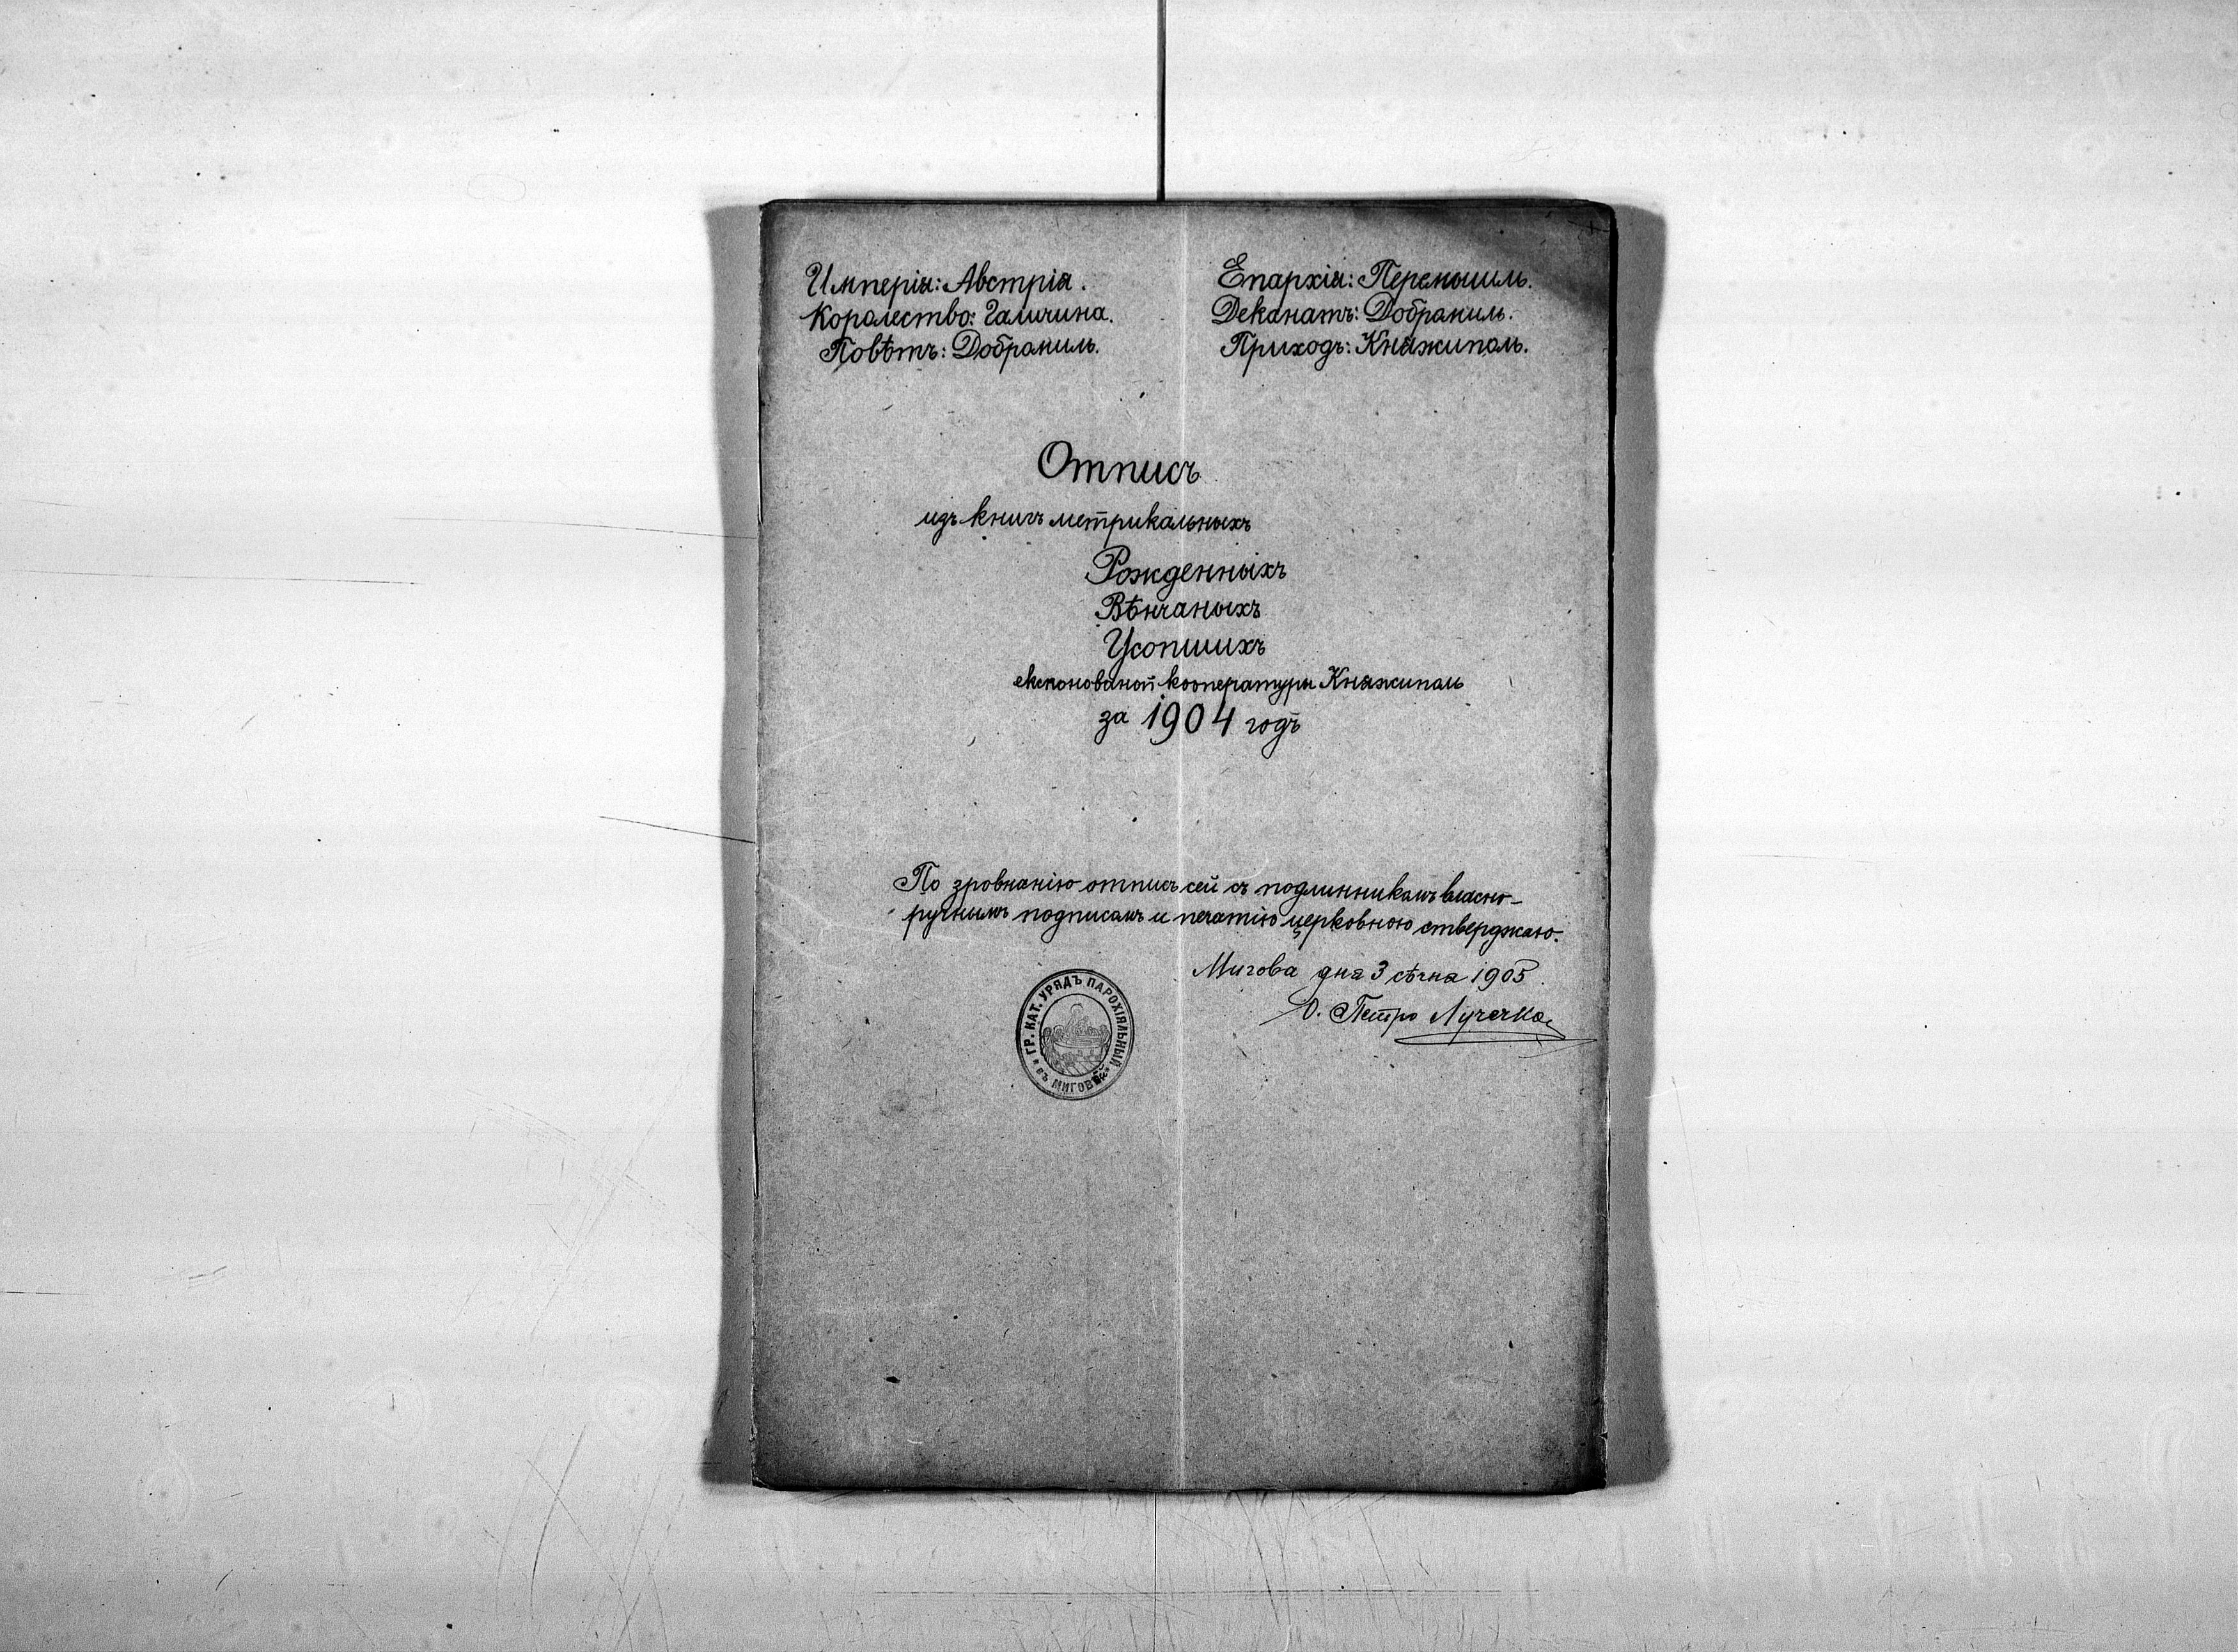 Имперія: Австрія.
Королество: Галичина.
Повѣтъ: Добромиль.
Епархія: Перемышль.
Деканатъ: Добромиль.
Приходъ: Княжиполь.
Отписъ
изъ книгъ метрикальныхъ
Рожденныхъ
Вѣнчаныхъ
Усопшихъ
експонованой коопературы Княжиполь
за 1904 годъ
По зровнанію отписъ сей съ подлинникомъ власно-
ручнымъ подписомъ и печатію церковною стверджаю.
Мигова дня 3 сѣчня 1905.
О. Петро Лучечко
ГР. КАТ. УРЯДЪ ПАРОХІЯЛЬНЫЙ
въ МИГОВѢЙ